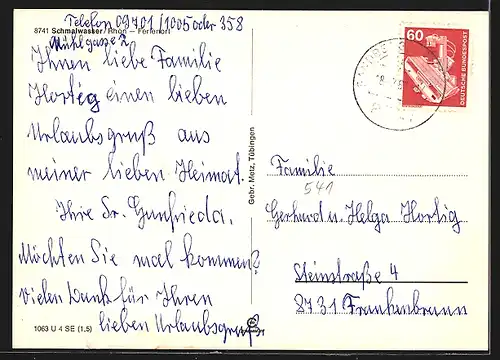 Telefon 09701/1005 oder 358
8741 Schmalwasser/Rhön – Ferienort
Mühlgasse 2
Ihnen liebe Familie
Hortig einen lieben
Urlaubsgruß aus
meiner lieben Heimat.
Ihre Sr. Gunfrieda.
Möchten Sie mal kommen?
Vielen Dank für Ihren
lieben Urlaubsgruß.
1063 U 4 SE (1.5)
Gebr. Metz, Tübingen
60
DEUTSCHE BUNDESPOST
Familie
541
Gerhard u. Helga Hortig
Steinstraße 4
8731 Frankenbrunn